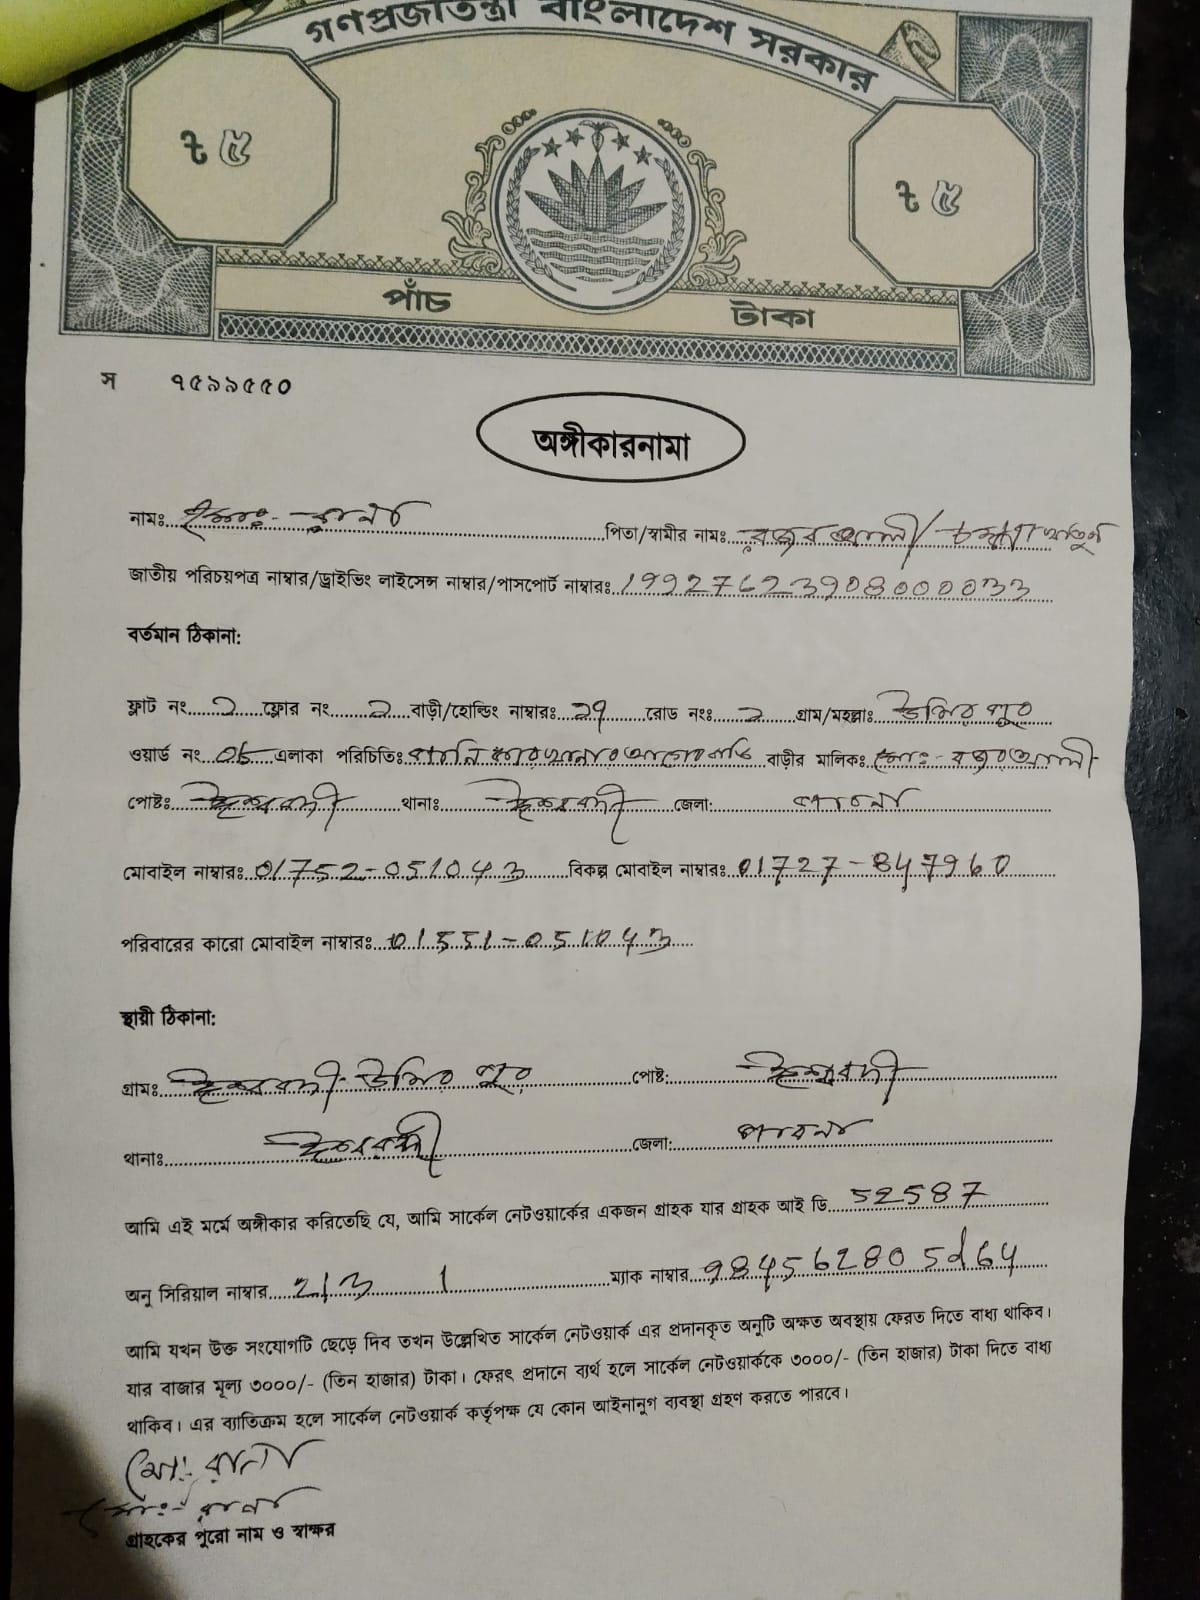 গণপ্রজাতন্ত্রী বাংলাদেশ সরকার
৳ ৫
৳ ৫
পাঁচ টাকা
স ৭৫৯৯৫৫০
অঙ্গীকারনামা
নামঃ মোঃ- রানা পিতা/স্বামীর নামঃ রজব আলী/
জাতীয় পরিচয়পত্র নাম্বার/ড্রাইভিং লাইসেন্স নাম্বার/পাসপোর্ট নাম্বারঃ 19927623908000033
বর্তমান ঠিকানা:
ফ্লাট নং ২ ফ্লোর নং ২ বাড়ী/হোল্ডিং নাম্বারঃ ২৭ রোড নংঃ ২ গ্রাম/মহল্লাঃ উমিরপুর
ওয়ার্ড নং 0৮ এলাকা পরিচিতিঃ পানি বাড়ীর মালিকঃ মোঃ- রজব আলী
পোষ্টঃ ঈশ্বরদী থানাঃ ঈশ্বরদী জেলা: পাবনা
মোবাইল নাম্বারঃ 01752-051043 বিকল্প মোবাইল নাম্বারঃ 01727-847960
পরিবারের কারো মোবাইল নাম্বারঃ 01551-051043
স্থায়ী ঠিকানা:
গ্রামঃ ঈশ্বরদী- উমিরপুর পোষ্ট: ঈশ্বরদী
থানাঃ ঈশ্বরদী জেলা: পাবনা
আমি এই মর্মে অঙ্গীকার করিতেছি যে, আমি সার্কেল নেটওয়ার্কের একজন গ্রাহক যার গ্রাহক আই ডি 52587
অনু সিরিয়াল নাম্বার 213 1 ম্যাক নাম্বার 984562805d64
আমি যখন উক্ত সংযোগটি ছেড়ে দিব তখন উল্লেখিত সার্কেল নেটওয়ার্ক এর প্রদানকৃত অনুটি অক্ষত অবস্থায় ফেরত দিতে বাধ্য থাকিব।
যার বাজার মূল্য ৩০০০/- (তিন হাজার) টাকা। ফেরৎ প্রদানে ব্যর্থ হলে সার্কেল নেটওয়ার্ককে ৩০০০/- (তিন হাজার) টাকা দিতে বাধ্য
থাকিব। এর ব্যাতিক্রম হলে সার্কেল নেটওয়ার্ক কর্তৃপক্ষ যে কোন আইনানুগ ব্যবস্থা গ্রহণ করতে পারবে।
মোঃ- রানা
মোঃ- রানা
গ্রাহকের পুরো নাম ও স্বাক্ষর